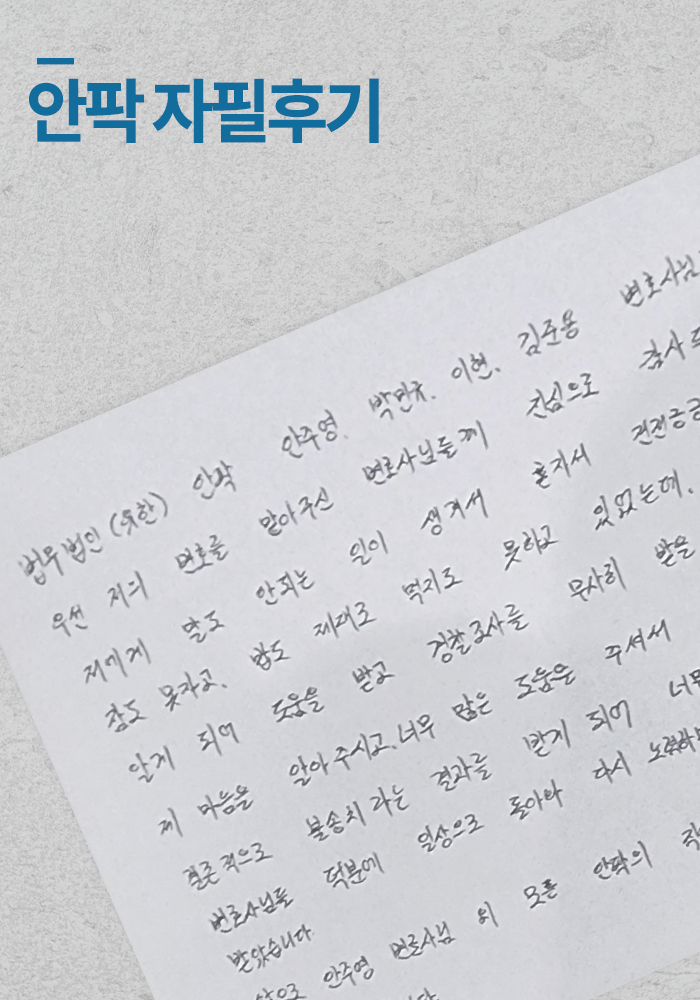 안팍 자필후기
법무법인 (유한) 안팍 안주영. 박민규. 이현. 김준용 변호사님
우선 저의 변호를 맡아주신 변호사님들께 진심으로 감사
저에게 말도 안되는 일이 생겨서 혼자서 전전긍긍
잠도 못자고, 밥도 제대로 먹지도 못하고 있었는데,
알게 되어 도움을 받고 경찰조사를 무사히 받을
제 마음을 알아주시고, 너무 많은 도움을 주셔서
결론적으로 불송치라는 결과를 받게 되어 너무
변호사님들 덕분에 일상으로 돌아와 다시
받았습니다.
안주영 변호사님 외 모든 안팍의